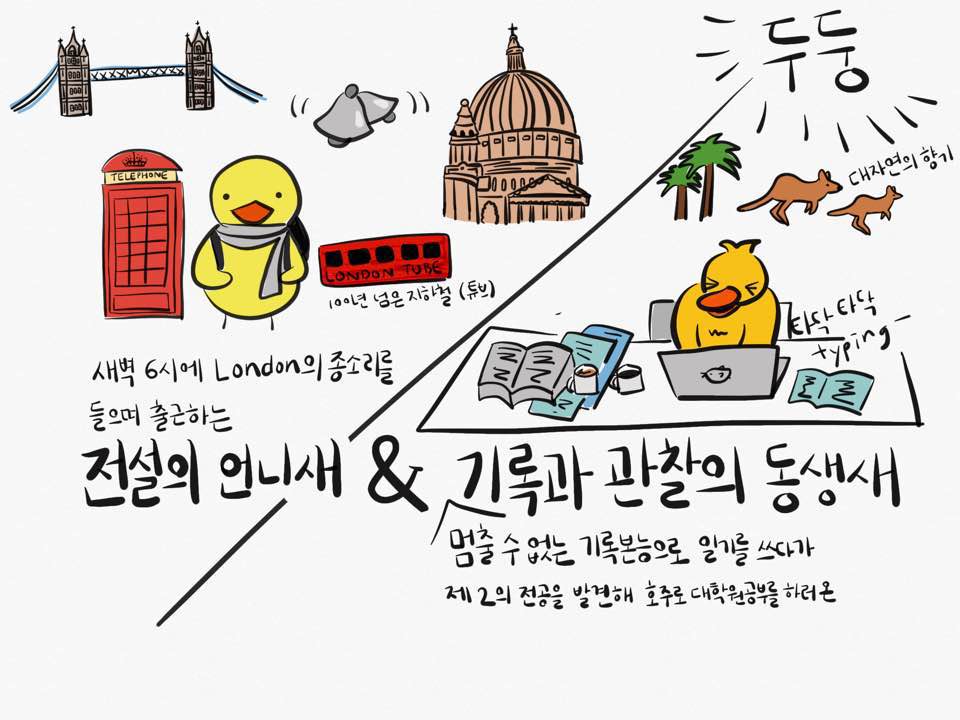 두둥
대자연의 향기
TELEPHONE
LONDON TUBE
100년 넘은 지하철 (튜브)
타닥타닥
typing
새벽 6시에 London의 종소리를
들으며 출근하는
전설의 언니새 & 기록과 관찰의 동생새
멈출 수 없는 기록본능으로 일기를 쓰다가
제 2의 전공을 발견해 호주로 대학원공부를 하러 온